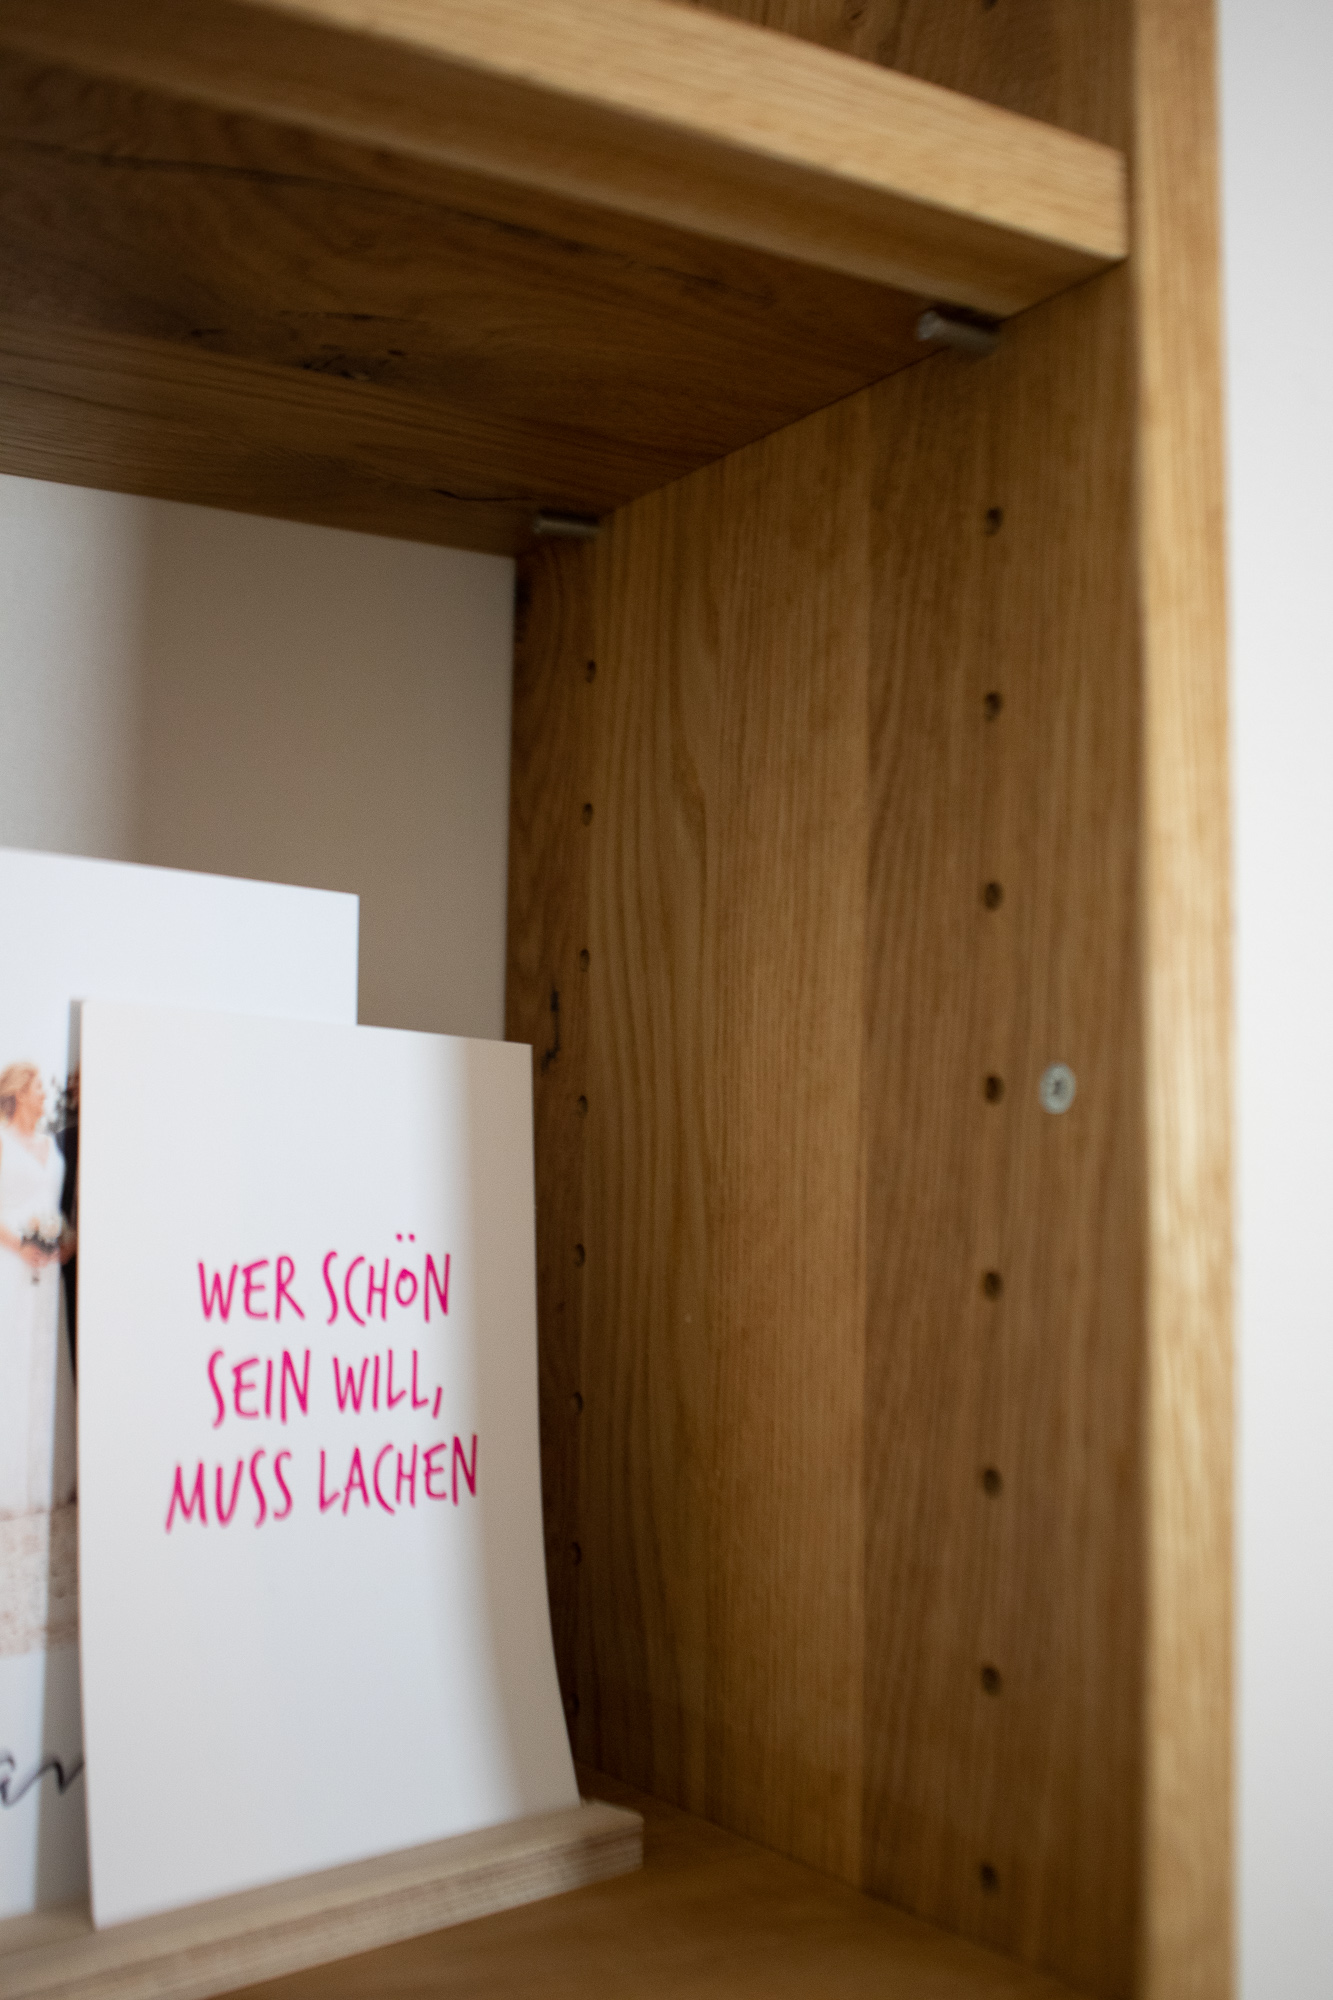 WER SCHÖN
SEIN WILL,
MUSS LACHEN